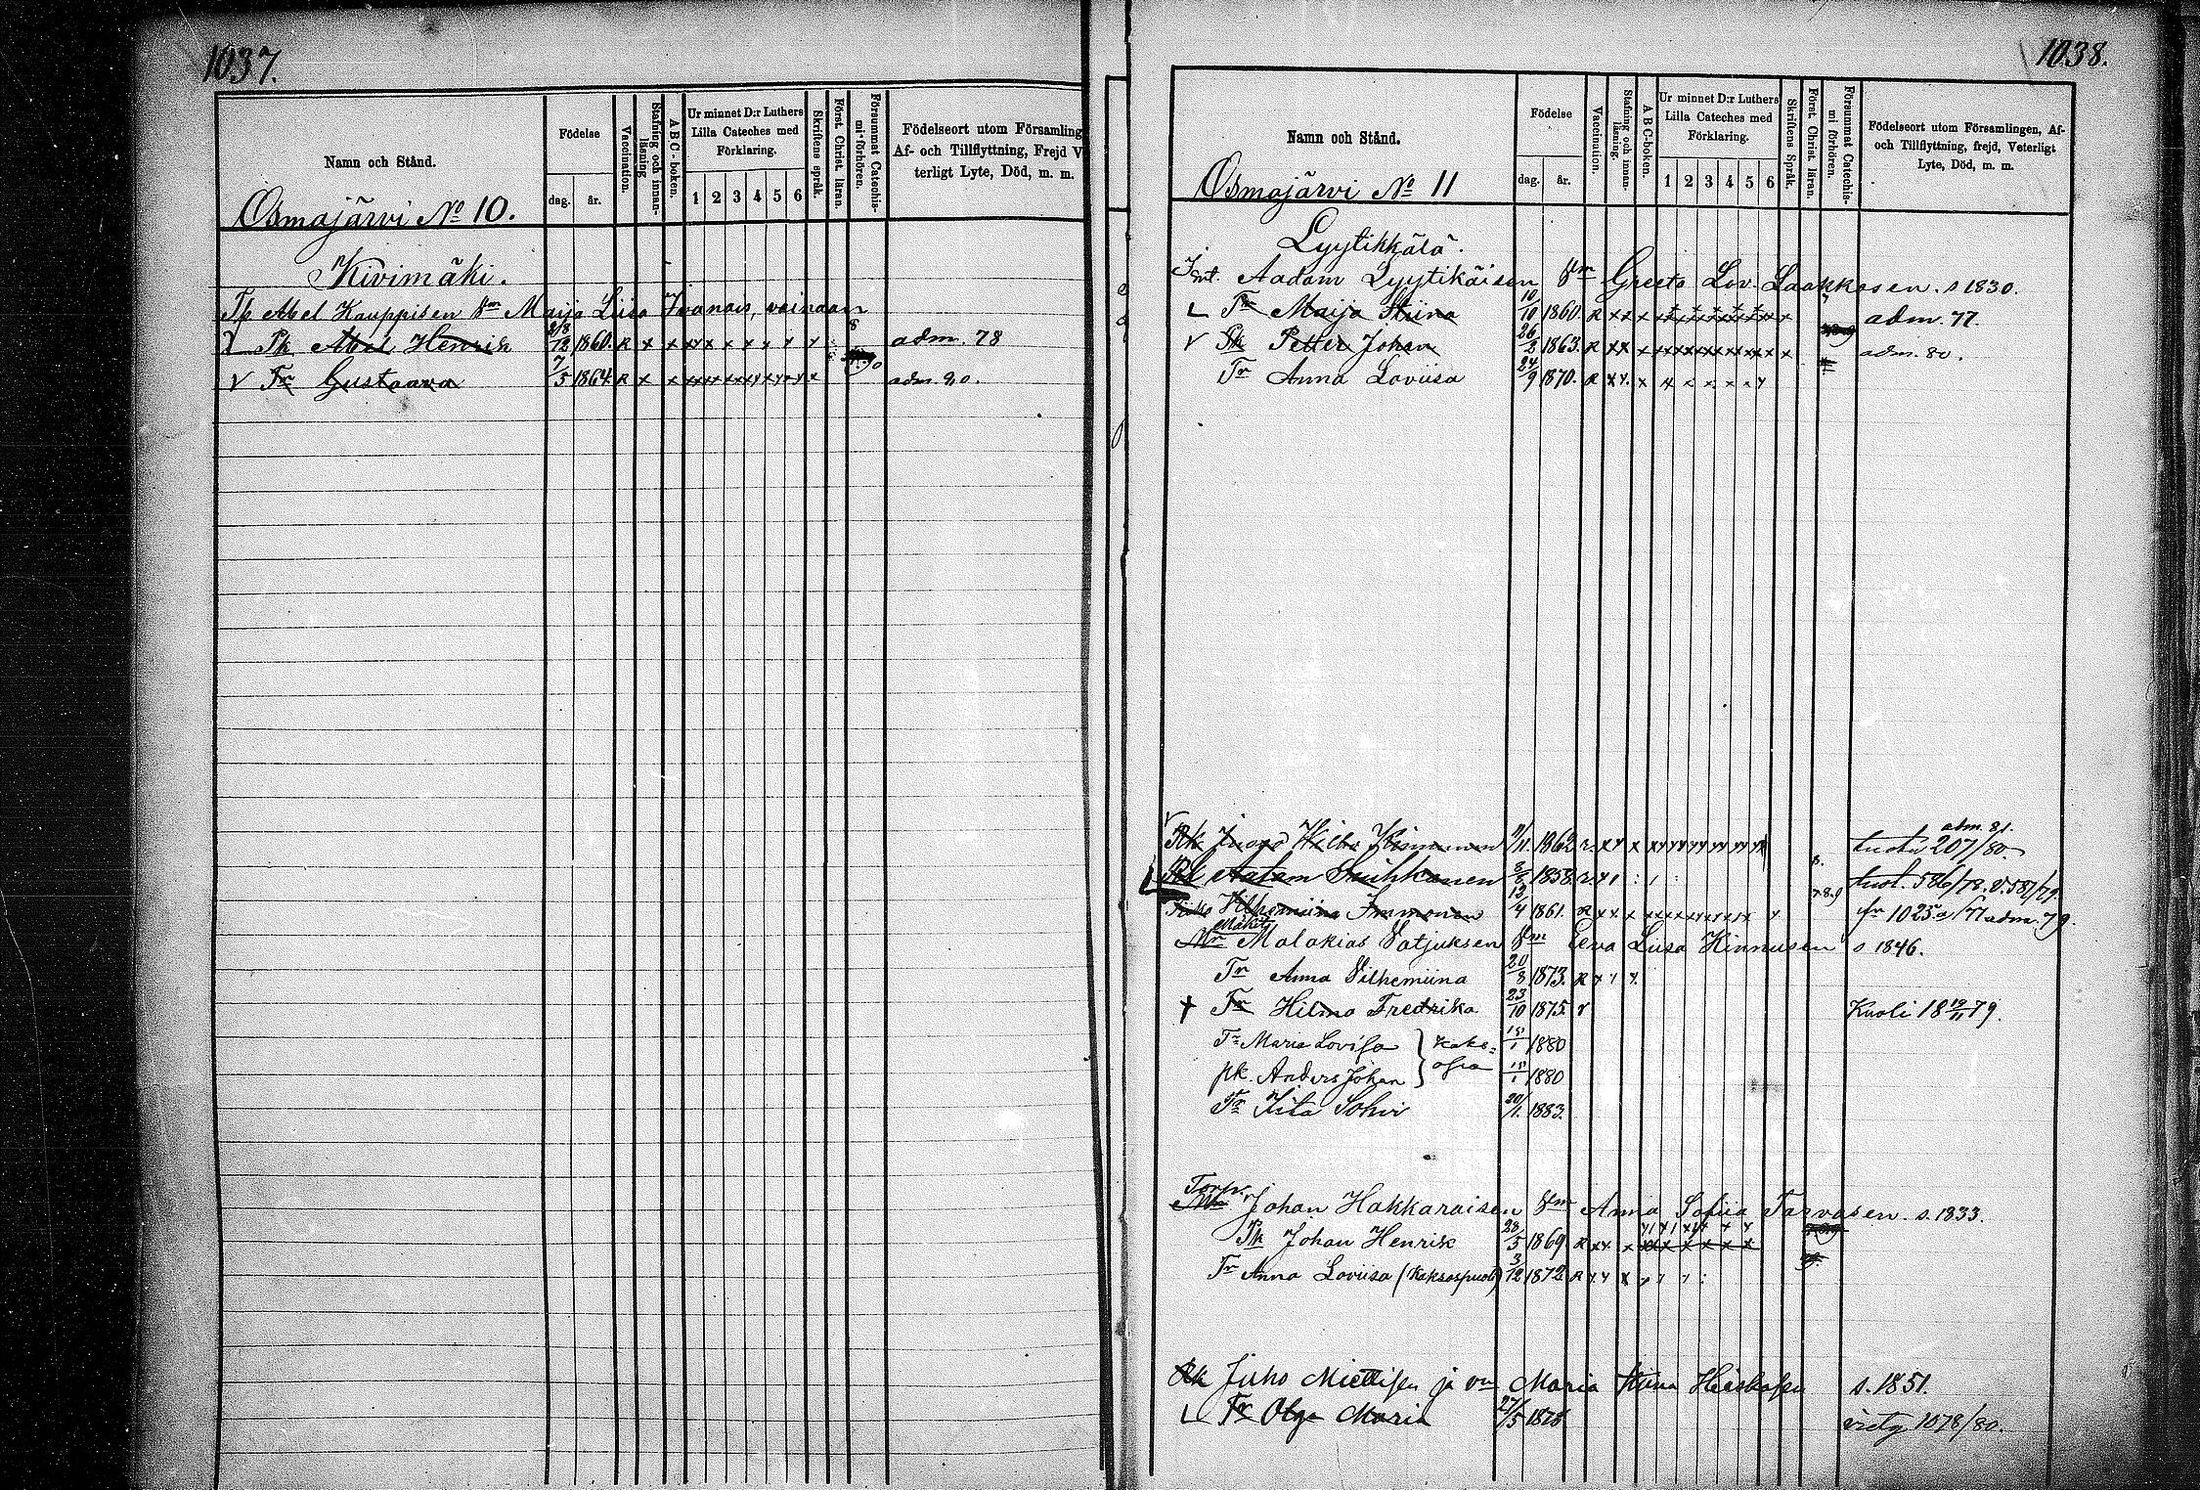 1037.
Namn och Stånd.
Födelse
dag. år.
Vaccination.
Stafning och innan-läsning
A B C - boken.
Ur minnet D:r Luthers Lilla Cateches med Förklaring.
1 2 3 4 5 6
Skriftens språk.
Först. Christ. läran.
Försummat Catechis-mi-förhören.
Födelseort utom Församling
Af- och Tillflyttning, Frejd V
terligt Lyte, Död, m. m.
Osmajärvi No 10.
Kivimäki.
Abel Kauppisen Vm Maija Liisa vainaan
Pk Abel Henrik 12 1860. R x x adm. 78
V Tr Gustaava 7/5 1864 R x x adm. 80.
1038.
Namn och Stånd.
Födelse
dag. år.
Vaccination.
Stafning och innan-läsning.
A B C-boken.
Ur minnet D:r Luthers Lilla Cateches med Förklaring.
1 2 3 4 5 6
Skriftens Språk.
Först. Christ. läran.
Försummat Catechis-mi förhören.
Födelseort utom Församlingen, Af-
och Tillflyttning, frejd, Veterligt
Lyte, Död, m. m.
Osmajärvi No 11
Lyytikkälä.
Int. Aadam Lyytikäisen Vm Greeta Lov. Laakkosen. s 1830.
Tr Maija Stiina 10/10 1860. R adm. 77.
V Pk Petter Johan 26/2 1863. R adm. 80.
Tr Anna Loviisa 24/9 1870. R
Vilho 9/11 1862 r. adm. 81. 207/80.
Aatam 8/8 1858. r. tust. 586/78. 587/79.
Vilhemiina Immonen 13/4 1861. R 7.8.9 adm. 79.
Mäkit
Malakias Vatjuksen Vm Eeva Liisa Kinnusen s 1846.
Tr Anna Vilhemiina 20/8 1873. R
† Tr Hilma Fredrika 23/10 1875. r Kuoli 18 19/11 79.
Tr Maria Lovisa } kaks= 15/1 1880
pk. Anders Johan } osia 15/1 1880
Tr Iita Sohvi 20/1. 1883.
Torp.
Johan Hakkaraisen Vm Anna Sofiia Tarvasen. s. 1833.
Pk Johan Henrik 28/5 1869 R
Tr Anna Loviisa (Kaksospuoli) 3/12 1872 R
Juho Miettisen ja vm Maria Stiina s. 1851.
Tr Olga Maria 27/5 1878 1078/80.